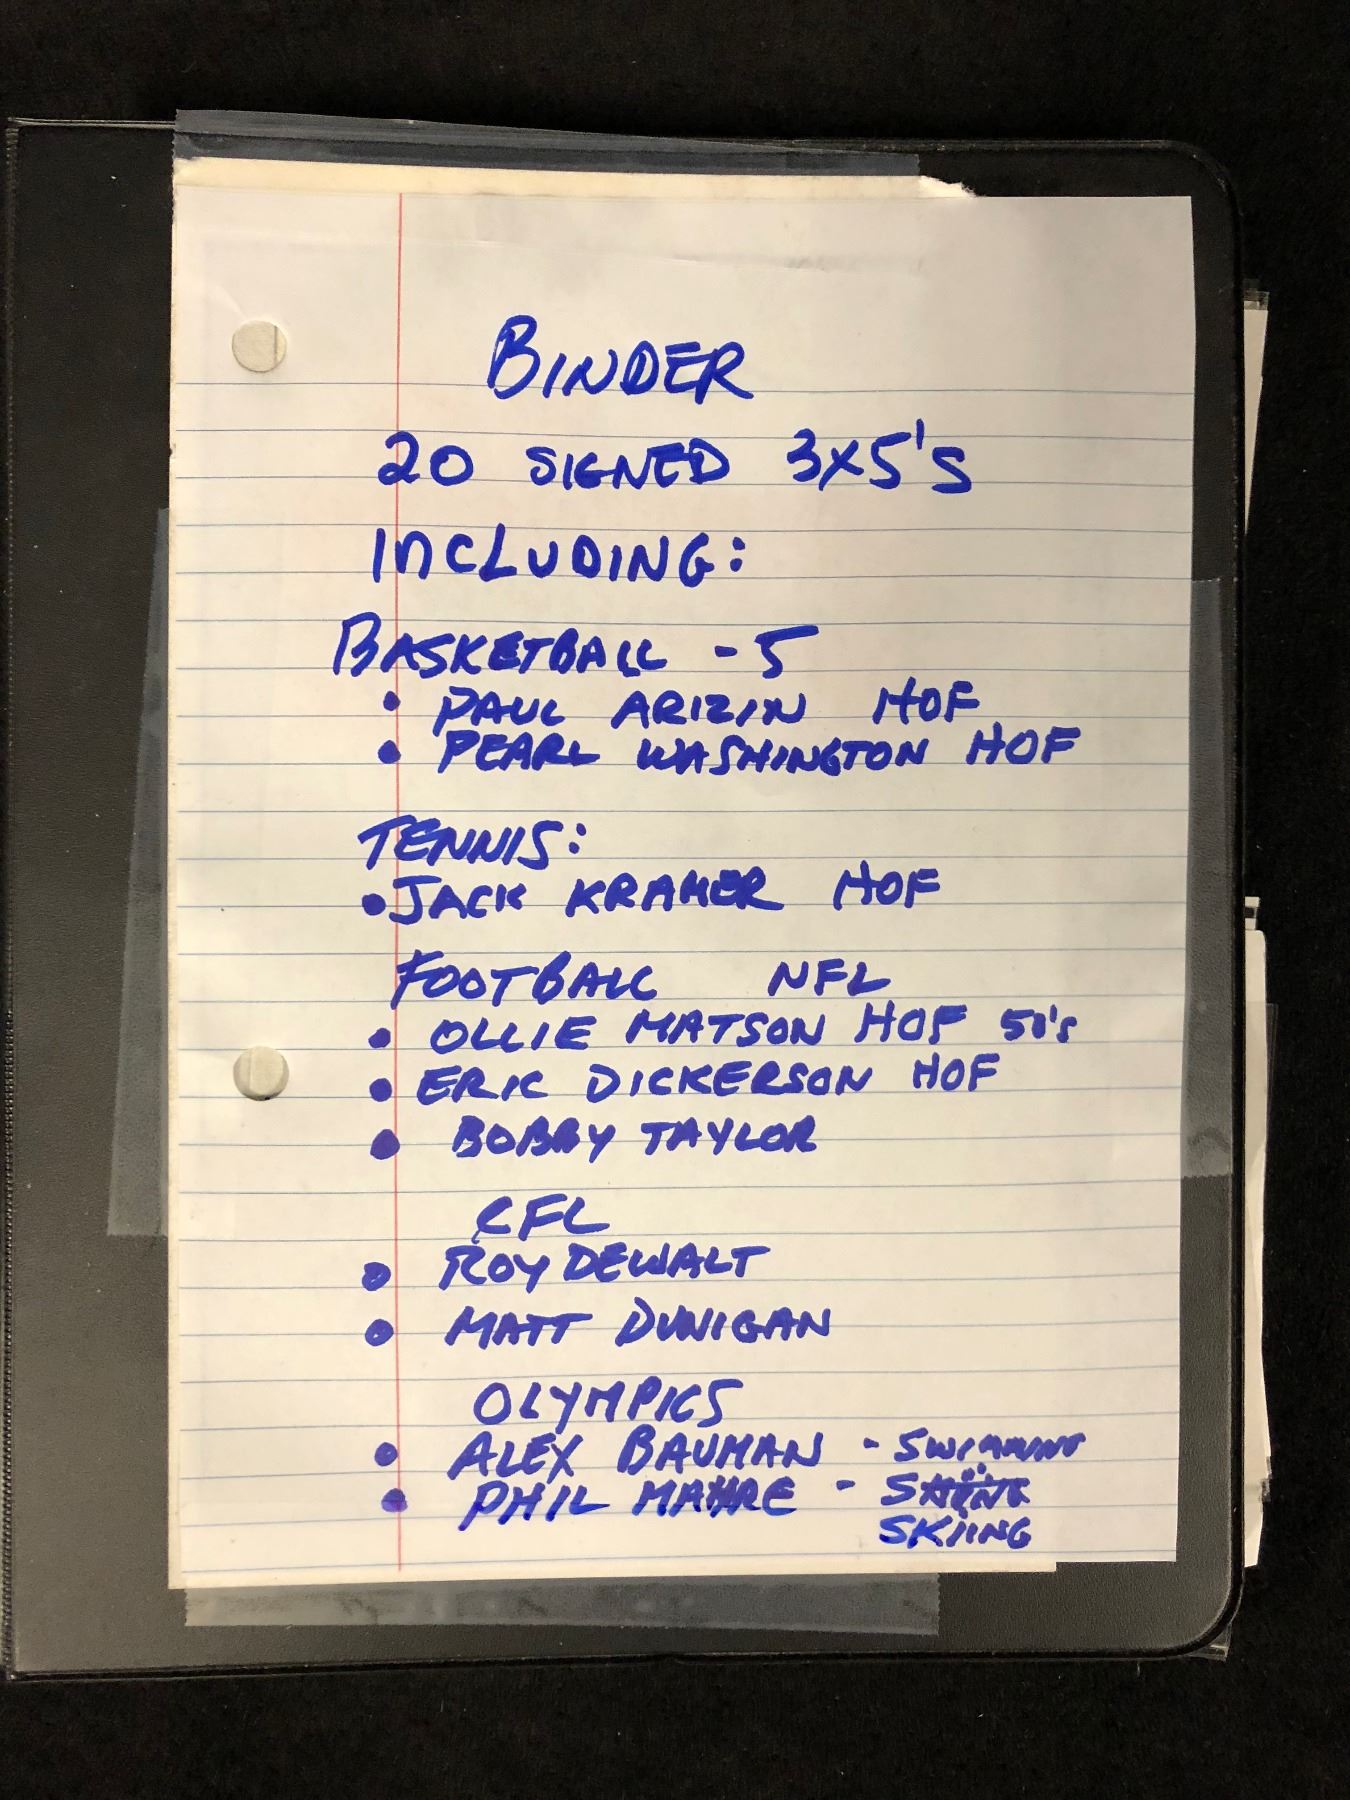 BINDER
20 SIGNED 3X5'S
INCLUDING:
BASKETBALL - 5
• PAUL ARIZIN HOF
• PEARL WASHINGTON HOF
TENNIS:
• JACK KRAMER HOF
FOOTBALL NFL
• OLLIE MATSON HOF 50's
• ERIC DICKERSON HOF
• BOBBY TAYLOR
CFL
• ROY DEWALT
• MATT DUNIGAN
OLYMPICS
• ALEX BAUMAN - SWIMMING
• PHIL MAHRE -
SKIING